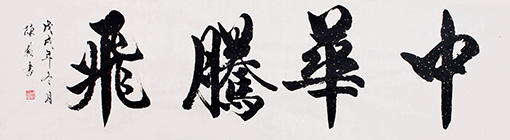 中華騰飛
戊戌年冬月
陳義書